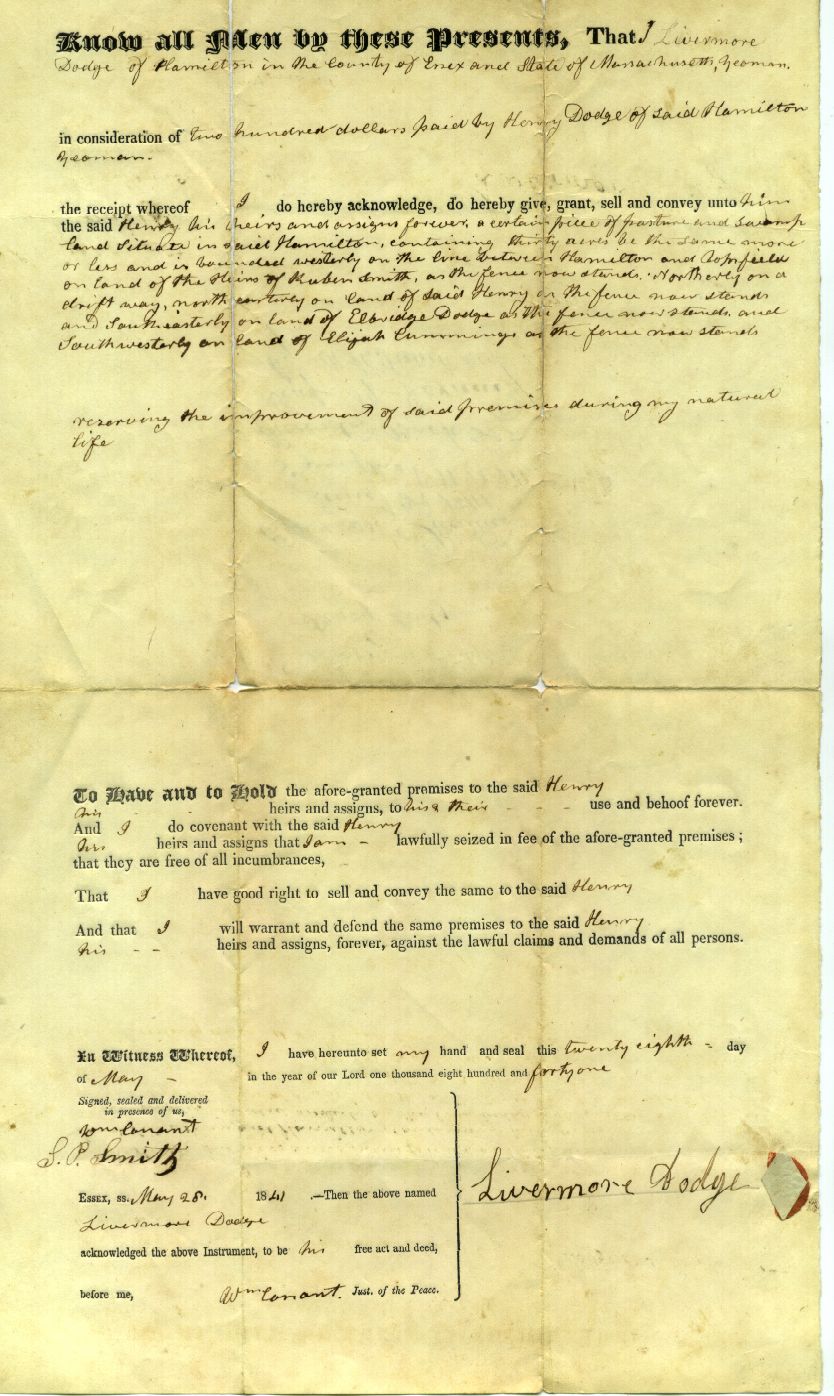 Know all Men by these Presents, That I Livermore
Dodge of Hamilton in the County of Essex and State of Massachusetts, Yeoman,
in consideration of two hundred dollars paid by Henry Dodge of said Hamilton
Yeoman.
the receipt whereof I do hereby acknowledge, do hereby give, grant, sell and convey unto him
the said Henry his heirs and assigns forever, a certain piece of pasture and swamp
land situate in said Hamilton, containing thirty acres be the same more
or less and is bounded westerly on the line between Hamilton and Topsfield
on land of the Heirs of Ruben Smith, as the fence now stands. Northerly on a
drift way, north easterly on land of said Henry as the fence now stands
and Southeasterly on land of Elbridge Dodge as the fence now stands. and
Southwesterly on land of Elijah Cummings as the fence now stands
reserving the improvement of said premises during my natural
life
To Have and to Hold the afore-granted premises to the said Henry
his - - heirs and assigns, to his & their - - - use and behoof forever.
And I do covenant with the said Henry
his heirs and assigns that I am - lawfully seized in fee of the afore-granted premises ;
that they are free of all incumbrances,
That I have good right to sell and convey the same to the said Henry
And that I will warrant and defend the same premises to the said Henry
his - - heirs and assigns, forever, against the lawful claims and demands of all persons.
In Witness Whereof, I have hereunto set my hand and seal this twenty eighth = day
of May - in the year of our Lord one thousand eight hundred and forty one
Signed, sealed and delivered
in presence of us,
Wm Conant
S. P. Smith
Livermore Dodge
Essex, ss. May 28. 1841 .—Then the above named
Livermore Dodge
acknowledged the above Instrument, to be his free act and deed,
before me, Wm Conant. Just. of the Peace.